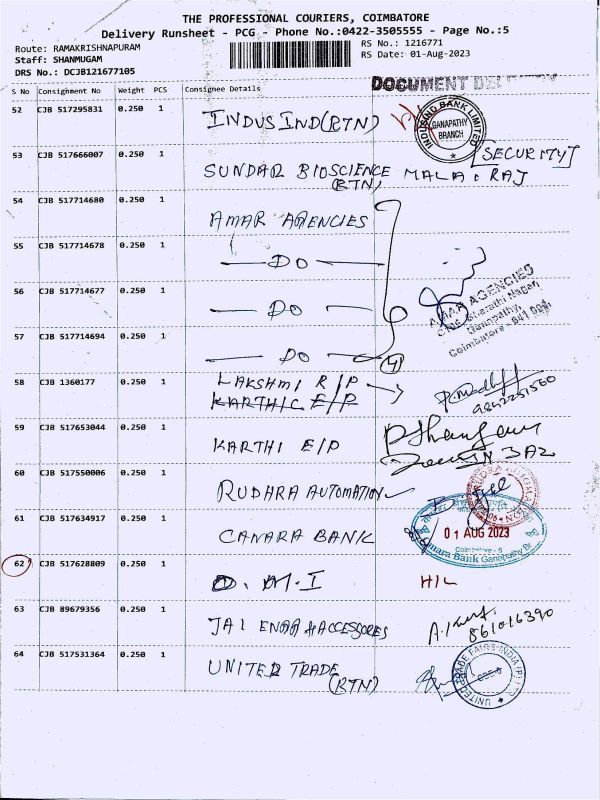 THE PROFESSIONAL COURIERS, COIMBATORE
Delivery Runsheet - PCG - Phone No.:0422-3505555 - Page No.:5
Route: RAMAKRISHNAPURAM
RS No.: 1216771
Staff: SHANMUGAM
RS Date: 01-Aug-2023
DRS No.: DCJB121677105
S No Consignment No Weight PCS Consignee Details
DOCUMENT
52 CJB 517295831 0.250 1 INDUSIND (RTN)
INDUSIND BANK LIMITED
GANAPATHY
BRANCH
53 CJB 517666007 0.250 1 SUNDAR BIOSCIENCE
(RTN)
[SECURITY]
54 CJB 517714680 0.250 1 AMAR AGENCIES
55 CJB 517714678 0.250 1 — DO —
56 CJB 517714677 0.250 1 — DO —
AMAR AGENCIES
Ganapathy,
57 CJB 517714694 0.250 1 — DO —
4
58 CJB 1360177 0.250 1 LAKSHMI R/P
KARTHIC E/P
59 CJB 517653044 0.250 1 KARTHI E/P
60 CJB 517550006 0.250 1 RUDHRA AUTOMATION
61 CJB 517634917 0.250 1 CANARA BANK
01 AUG 2023
Coimbatore - 6
Canara Bank Ganapathy Br.
62 CJB 517628809 0.250 1 D. M. I
63 CJB 89679356 0.250 1 JAI ENGG & ACCESSORES
861016390
64 CJB 517531364 0.250 1 UNITED TRADE
(RTN)
UNITED TRADE FAIRS INDIA (P) LTD